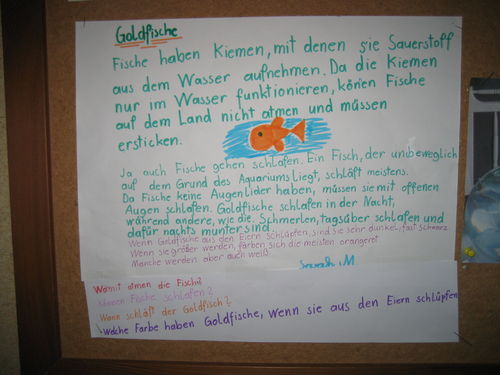 Goldfische
Fische haben Kiemen, mit denen sie Sauerstoff
aus dem Wasser aufnehmen. Da die Kiemen
nur im Wasser funktionieren, können Fische
auf dem Land nicht atmen und müssen
ersticken.
Ja auch Fische gehen schlafen. Ein Fisch, der unbeweglich
auf dem Grund des Aquariums liegt, schläft meistens.
Da Fische keine Augenlider haben, müssen sie mit offenen
Augen schlafen. Goldfische schlafen in der Nacht,
während andere, wie die Schmerlen, tagsüber schlafen und
dafür nachts munter sind.
Wenn Goldfische aus den Eiern schlüpfen, sind sie sehr dunkel, fast schwarz.
Wenn sie größer werden, färben sich die meisten orangerot
Manche werden aber auch weiß.
Sarah M.
Womit atmen die Fische?
Können Fische schlafen?
Wann schläft der Goldfisch?
Welche Farbe haben Goldfische, wenn sie aus den Eiern schlüpfen